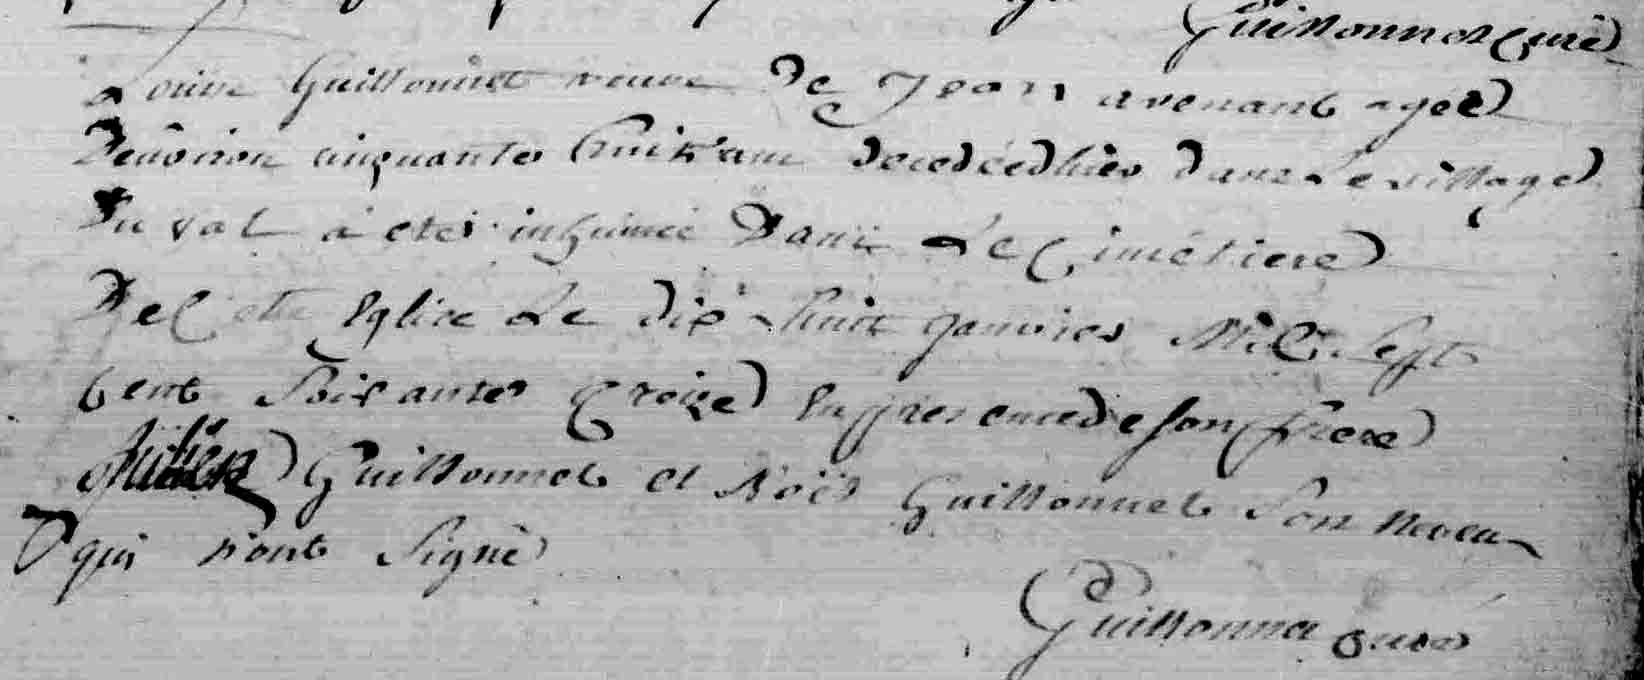 Guillonnet curé
Louise Guillonnet veuve de Jean avenant agée
denviron cinquante huit ans decedée hier dans le village
du val à eté inhumée dans le Cimétiere
de Cette Eglise le dix huit janvier Mil Sept
Cent Soixante treize En presence de son frere
Julien Guillonnet et Noël Guillonnet Son neveu
qui n'ont Signé
Guillonnet curé